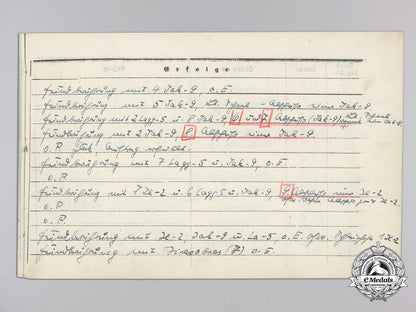 Erfolge
Feindberührung mit 4 Jak-9, o.E.
Feindberührung mit 5 Jak-9, Lt. - Abschuss einer Jak-9
Feindberührung mit 2 Lagg-5 u. 8 Jak-9, 6 und 7 Abschuss (Jak-9) Lt.
Feindberührung mit 2 Jak-9, 8 Abschuss einer Jak-9
o.F. Auftrag erfüllt.
Feindberührung mit 7 Lagg-5 u. Jak-9, o.E.
o.F.
Feindberührung mit 7 Il-2 u. 6 Lagg-5 u. Jak-9, 9 Abschuss einer Il-2
o.F.
o.F.
Feindberührung mit Il-2, Jak-9 u. La-5 o.E.
Feindberührung mit Airacobras (7) o.E.
eMedals